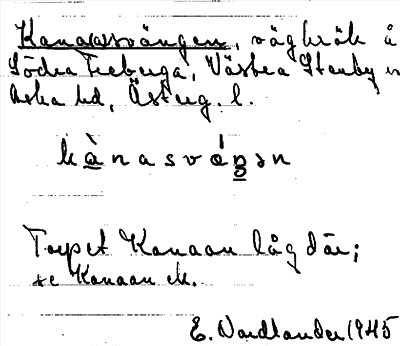 Kanaansvängen, vägkrök å
Södra Freberga, Västra Stenby sn
Aska hd, Österg. l.
kànasvǽŋən
Torpet Kanaan låg där;
se Kanaan ek.
E. Nordlander 1945